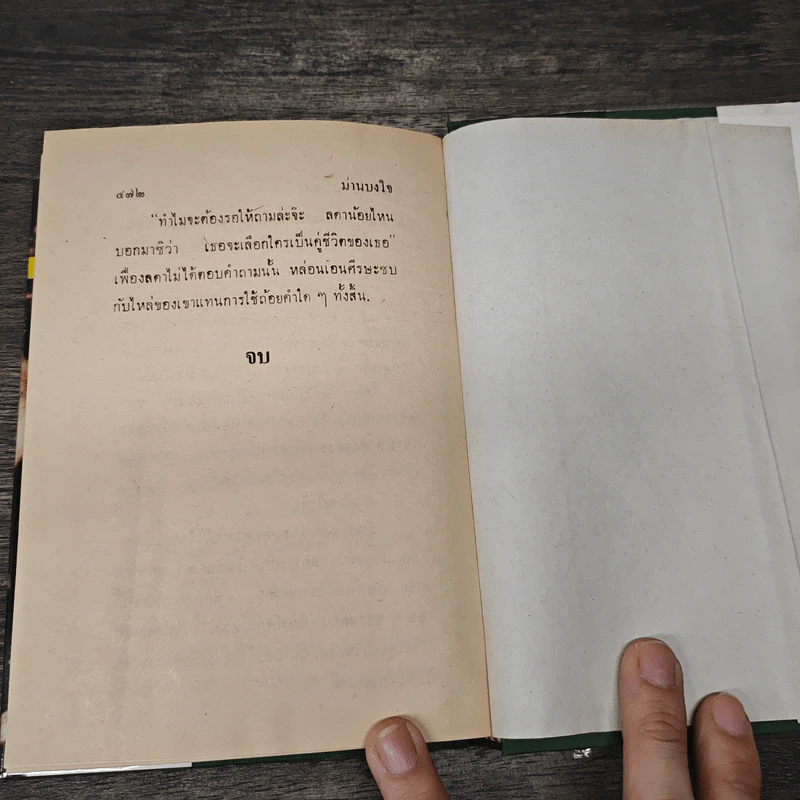 ๔๗๒ ม่านบงใจ
“ทำไมจะต้องรอให้ถามล่ะจ๊ะ ลดาน้อยไหน
บอกมาซิว่า เธอจะเลือกใครเป็นคู่ชีวิตของเธอ”
เฟื่องลดาไม่ได้ตอบคำถามนั้น หล่อนเอนศีรษะซบ
กับไหล่ของเขาแทนการใช้ถ้อยคำใด ๆ ทั้งสิ้น.
จบ